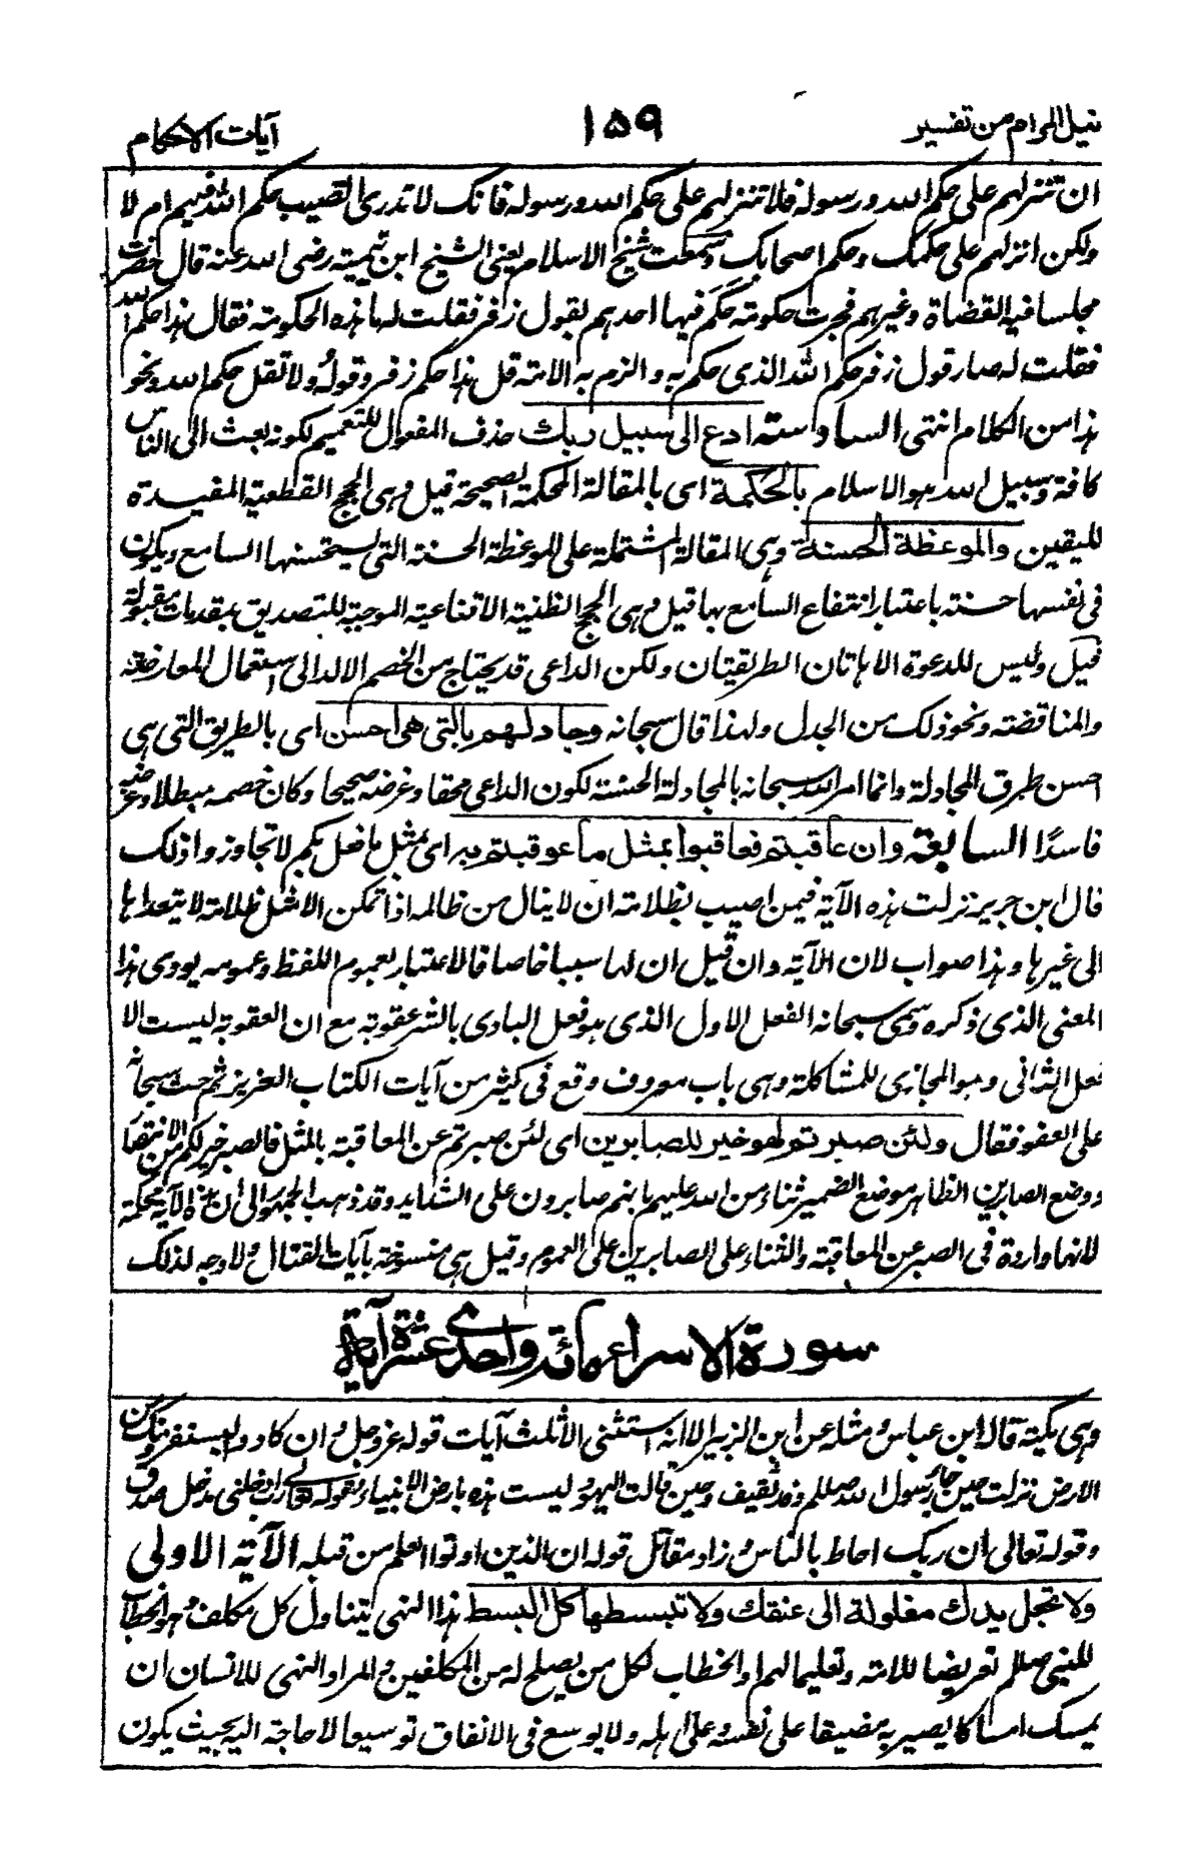 نيل المرام من تفسير ١٥٩ آيات الاحكام
ان تنزلهم على حكم الله ورسوله فلا تنزلهم على حكم الله ورسوله فانك لا تدرى اتصيب حكم الله فيهم ام لا
ولكن انزلهم على حكمك وحكم اصحابك وسمعت شيخ الاسلام يعنى الشيخ ابن تيمية رضى الله عنه قال حضرت
مجلسا فيه القضاة وغيرهم فجرت حكومة حكم فيها احدهم بقول زفر فقلت له ما هذه الحكومة فقال هذا حكم الله
فقلت له صار قول زفر حكم الله الذى حكم به والزم به الامة قل هذا حكم زفر وقوله ولا تقل حكم الله ونحو
هذا من الكلام انتهى السادسة ادع الى سبيل ربك حذف المفعول للتعميم لكونه بعث الى الناس
كافة وسبيل الله هو الاسلام بالحكمة اى بالمقالة المحكمة الصحيحة قيل وهى الحجج القطعية المفيدة
لليقين والموعظة الحسنة وهى المقالة المشتملة على الموعظة الحسنة التى يستحسنها السامع ويكون
فى نفسها حسنة باعتبار انتفاع السامع بها قيل وهى الحجج الظنية الاقناعية الموجبة للتصديق بمقدمات مقبولة
قيل وليس للدعوة الا هاتان الطريقتان ولكن الداعى قد يحتاج من الخصم الالد الى استعمال المعارضة
والمناقضة ونحو ذلك من الجدل ولهذا قال سبحانه وجادلهم بالتى هى احسن اى بالطريق التى هى
احسن طرق المجادلة وانما امر الله سبحانه بالمجادلة الحسنة لكون الداعى محقا وغرضه صحيحا وكان خصمه مبطلا وغرضه
فاسدًا السابعة وان عاقبتم فعاقبوا بمثل ما عوقبتم به اى بمثل ما فعل بكم لا تجاوزوا ذلك
قال ابن جرير نزلت هذه الآية فيمن اصيب بظلامة ان لا ينال من ظالمه اذا تمكن الا مثل ظلامته لا يتعداها
الى غيرها وهذا صواب لان الآية وان قيل ان لها سببا خاصا فالاعتبار بعموم اللفظ وعمومه يودى هذا
المعنى الذى ذكره وسمى سبحانه الفعل الاول الذى هو فعل البادى بالشر عقوبة مع ان العقوبة ليست الا
فعل الثانى وهو المجازى للمشاكلة وهى باب معروف وقع فى كثير من آيات الكتاب العزيز ثم حث سبحانه
على العفو فقال ولئن صبرتم لهو خير للصابرين اى لئن صبرتم عن المعاقبة بالمثل فالصبر خير لكم من الانتصا
ووضع الصابرين الظاهر موضع الضمير ثناء من الله عليهم بانهم صابرون على الشدايد وقد ذهب الجمهور الى ان هذه الآية محكمة
لانها واردة فى الصبر عن المعاقبة والثناء على الصابرين على العموم وقيل هى منسوخة بآيات القتال ولا وجه لذلك
سورة الاسراء مائة واحدى عشرة آية
وهى مكية قاله ابن عباس ومثله عن ابن الزبير الا انه استثنى الا ثلث آيات قوله عز وجل وان كادوا ليستفزونك من
الارض نزلت حين جاء رسول الله صللم وفد ثقيف وحين قالت اليهود ليست هذه بارض الانبياء وقوله تعالى رب ادخلنى مدخل صدق
وقوله تعالى ان ربك احاط بالناس وزاد مقاتل قوله ان الذين اوتوا العلم من قبله الآية الاولى
ولا تجعل يدك مغلولة الى عنقك ولا تبسطها كل البسط هذا النهى يتناول كل مكلف وهو الخطاب
للنبى صللم تعريضا للامة وتعليما لهم او الخطاب لكل من يصلح له من المكلفين والمراد النهى للانسان ان
يمسك امساكا يصير به مضيقا على نفسه وعلى اهله ولا يوسع فى الانفاق توسيعا لا حاجة اليه بحيث يكون